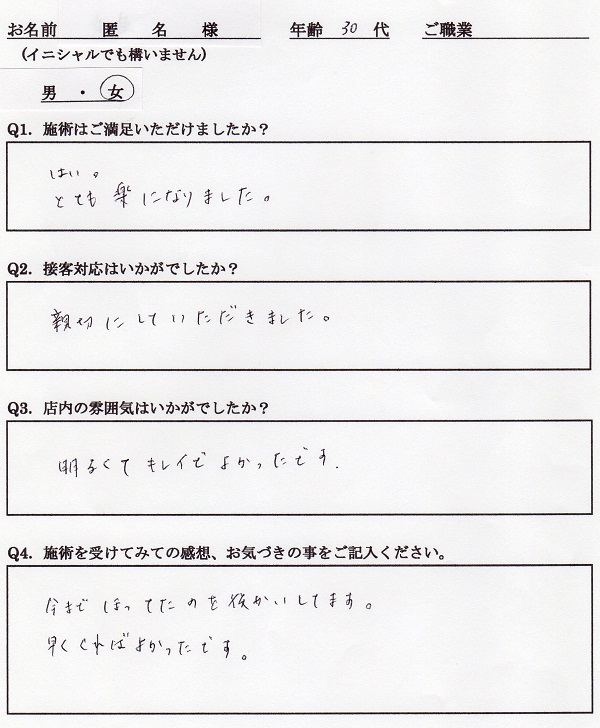 お名前 匿名様 年齢 30 代 ご職業
(イニシャルでも構いません)
男 ・ 女
Q1. 施術はご満足いただけましたか?
はい。
とても楽になりました。
Q2. 接客対応はいかがでしたか?
親切にしていただきました。
Q3. 店内の雰囲気はいかがでしたか?
明るくてキレイでよかったです.
Q4. 施術を受けてみての感想、お気づきの事をご記入ください。
今までほってたのを後かいしてます。
早くくればよかったです。